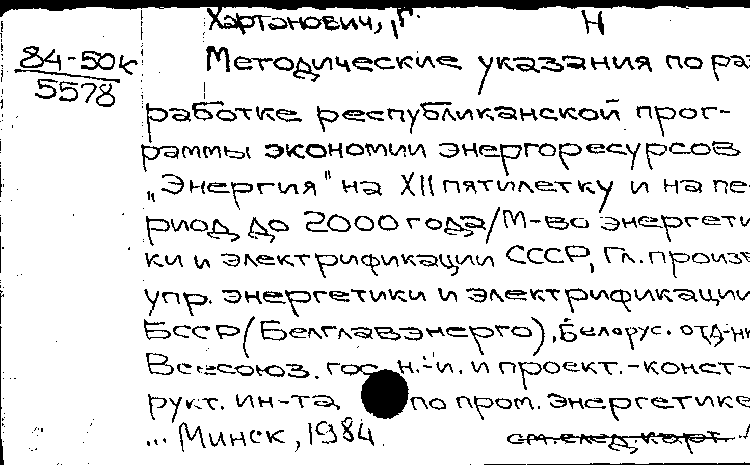 Хартанович, Г. Н
84-50к
5578
Методические указания по раз
работке республиканской прог-
раммы экономии энергоресурсов
„Энергия" на XII пятилетку и на пе
риод до 2000 года/М-во энергети
ки и электрификации СССР, Гл. произв
упр. энергетики и электрификации
БССР (Белглавэнерго), Белорус. отд-ни
Всесоюз. гос. н.-и. и проект.-конст-
рукт. ин-та по пром. энергетике
... Минск, 1984.
см.след.карт.